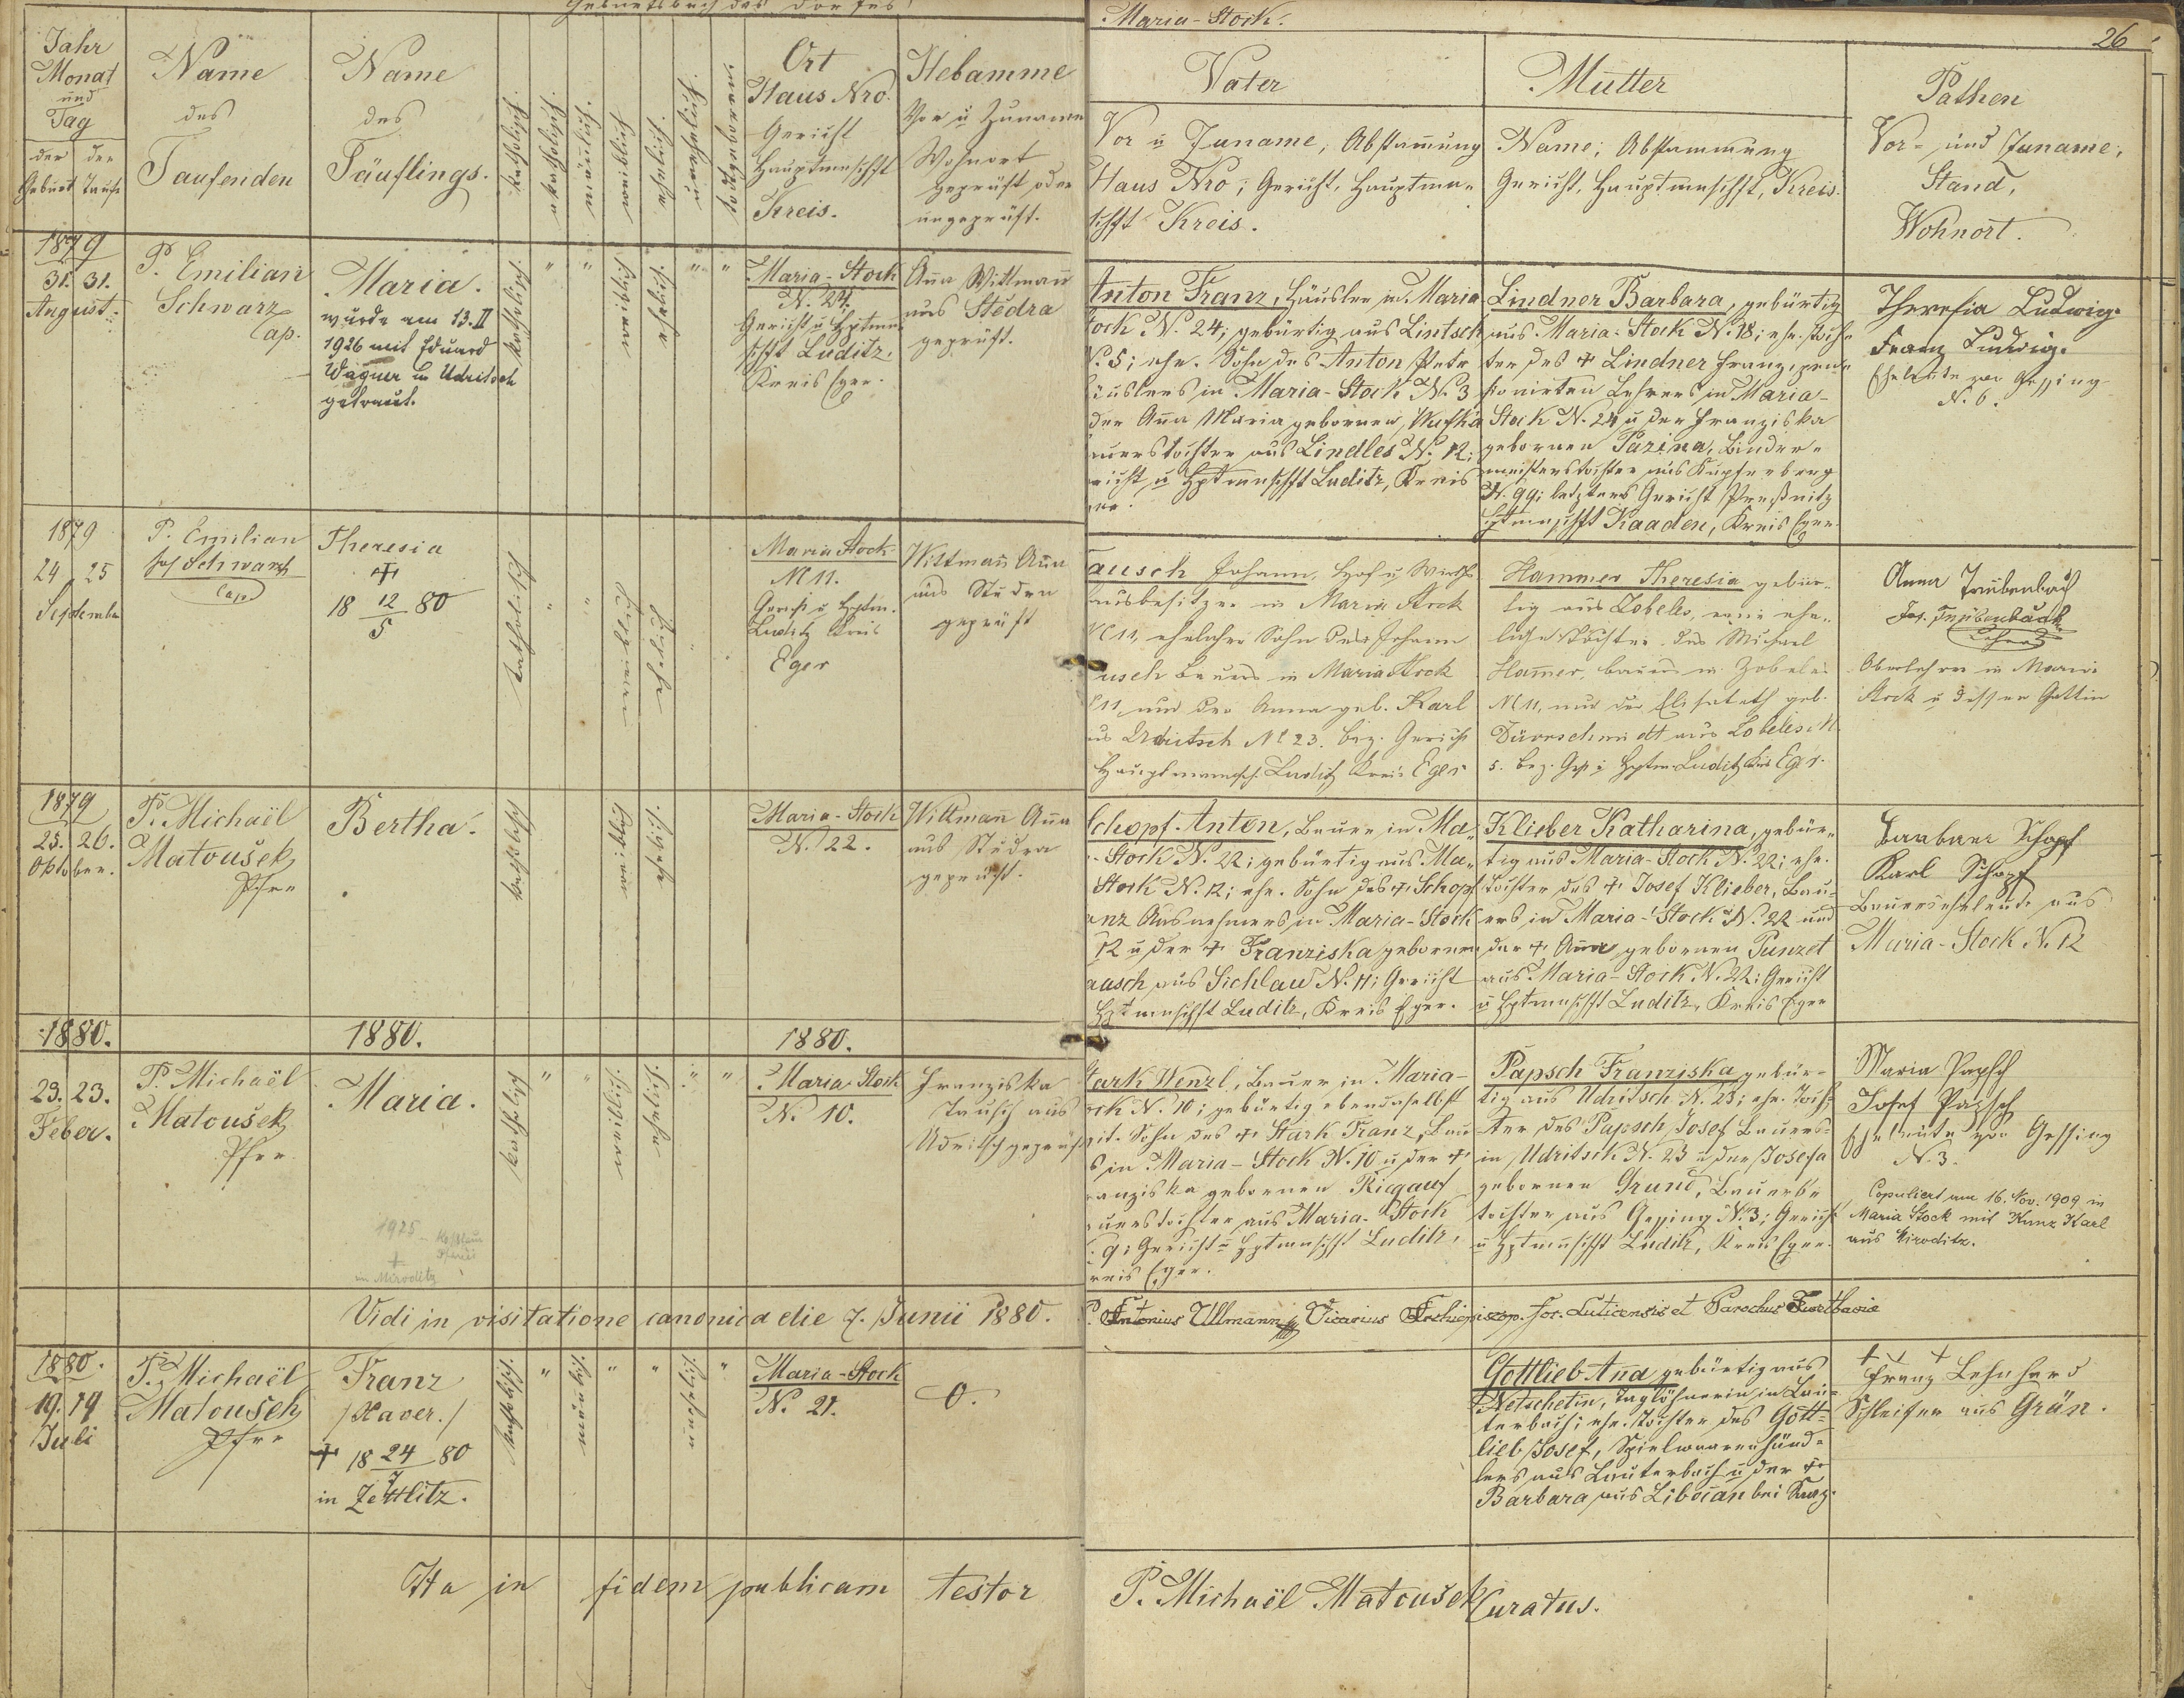 Geburtsbuch des Dorfes
Maria-Stock.
26
Jahr
Monat
und
Tag
der der
Geburt Taufe
Name
des
Taufenden
Name
des
Täuflings.
katholisch.
akatholisch.
mänlich.
weiblich.
ehelich.
unehelich.
todtgeboren.
Ort
Haus Nro.
Gericht
Hauptmschft
Kreis.
Hebamme
Vor u Zuname
Wohnort
geprüft oder
ungeprüft.
Vater
Vor u Zuname, Abstamung
Haus Nro; Gericht, Hauptmaschft
Kreis.
Mutter
Name; Abstammung
Gericht, Hauptmschft, Kreis.
Pathen
Vor- und Zuname,
Stand,
Wohnort.
1879
31. 31.
August.
P. Emilian
Schwarz
Cap.
Maria.
wurde am 13.II
1926 mit Eduard
Wagner in Udritsch
getraut.
katholisch.
weiblich.
ehelich.
Maria-Stock
N. 24.
Gericht u Hptm
schft Luditz.
Kreis Eger.
Aña Wittmañ
aus Stedra
geprüft.
Anton Franz, Häusler in Maria
tock N. 24; gebürtig aus Lintsch
N. 5; ehe. Sohn des Anton
äuslers in Maria-Stock N. 3
der Aña Maria gebornen
auerstochter aus Lindles N. 12;
richt u Hptmschft Luditz, Kreis
Lindner Barbara, gebürtig
aus Maria-Stock N. 18; ehe. Toch-
ter des + Lindner Franz, pen-
sionirten Lehrers in Maria-
Stock N. 24 u der Franziska
gebornen Pazina, Binder-
meisterstochter aus Kupferberg
N. 99; letzteres Gericht Preßnitz
Hptmschft Kaaden, Kreis Eger.
Theresia Ludwig.
Franz Ludwig.
Eheleute von Gessing
N. 6.
1879
24 25
September
P. Emilian
Jos Schwarz
Cap.
Theresia
+
18 12/5 80
katholisch
weiblich
ehelich
Maria Stock
N 11.
Gericht u Hptm.
Luditz Kreis
Eger
Wittmañ Aña
aus Studra
geprüft
ausch Johann, Hof u Wirths
hausbesitzer in Maria Stock
N 11, ehelicher Sohn des Johann
usch Bauers in Maria Stock
N 11, und der Anna geb. Karl
us Udritsch N° 23. bez. Gericht
Hauptmannsch. Luditz Kreis Eger
Hammer Theresia gebür-
tig aus Zobeles, eine ehe-
liche Tochter des Michael
Hamer, Bauers in Zobeles
N 11, und der Elisabeth geb.
Dürrschmidt aus Zobeles N.
5. bez. Ger. u Hptm. Luditz Kreis Eger.
Anna Trübenbach
Jos. Trübenbach
Oberlehrer in Maria
Stock u dessen Gattin
1879
25. 26.
Oktober.
P. Michaël
Matoušek
Pfrr
Bertha.
katholisch
weiblich
ehelich.
Maria-Stock
N. 22.
Wittmañ Aña
aus Studra
geprüft.
Schopf Anton, Bauer in Ma-
-Stock N. 22; gebürtig aus Ma-
Stock N. 12; ehe. Sohn des + Schopf
anz Ausnehmers in Maria-Stock
12 u der + Franziska gebornen
ausch aus Sichlau N. 11; Gericht
Hptmschft Luditz, Kreis Eger.
Klieber Katharina, gebür-
tig aus Maria-Stock N. 22; ehe.
Tochter des + Josef Klieber, Bau-
ers in Maria-Stock N. 22 und
der + Aña gebornen Punzet
aus Maria-Stock N. 22; Gericht
u Hptmschft Luditz, Kreis Eger
Barbara Schopf
Karl Schopf
Bauerseheleute aus
Maria-Stock N. 12
1880.
1880.
1880.
23. 23.
Feber.
P. Michaël
Matoušek
Pfrr
Maria.
1925
+
in Miroditz
katholisch
weiblich.
ehelich.
Maria-Stock
N. 10.
Franziska
Tausch aus
Udritsch geprüft
Stark Wenzl, Bauer in Maria-
ock N. 10; gebürtig ebendaselbst
Sohn des + Stark Franz, Bau
s in Maria-Stock N. 10 u der +
anziska gebornen Riegauf
auerstochter aus Maria-Stock
. 9; Gericht u Hptmschft Luditz,
reis Eger.
Papsch Franziska gebür-
tig aus Udritsch N. 23; ehe. Toch-
ter des Papsch Josef Bauers
in Udritsch N. 23 u der Josefa
gebornen Grund, Bauers-
tochter aus Gessing N. 3; Gericht
u Hptmschft Luditz, Kreis Eger.
Maria Papsch
Josef Papsch
Eheleute von Gessing
N. 3.
Copuliert am 16. Nov. 1909 in
Maria Stock mit Kunz Karl
aus Miroditz.
Vidi in visitatione canonica die 7. Junii 1880. P. Antonius Ullmann Vicarius Archiepiscop. for. Luticensis et Parochus
1880.
19. 19
Juli
P. Michaël
Matoušek
Pfrr
Franz
/Xaver./
+ 18 24/7 80
in Zettlitz.
katholisch.
mänlich.
unehelich
Maria-Stock
N. 21.
0.
Gottlieb Aña gebürtig aus
Netschetin, Taglöhnerin in Lau-
terbach; ehe. Tochter des Gott-
lieb Josef, Spielwaarenhänd-
lers aus Lauterbach u der +
Barbara aus Libočan bei Saaz.
+ + +
Franz Lehnhard
Schleifer aus Grün.
Ita in fidem publicam testor P. Michaël Matoušek Curatus.